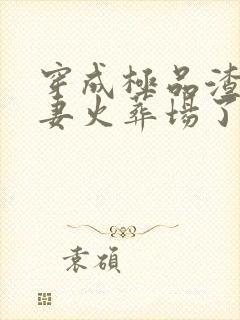 穿成極品渣
妻火葬場了
袁碩